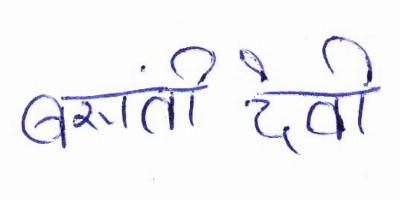 बसांती देवी